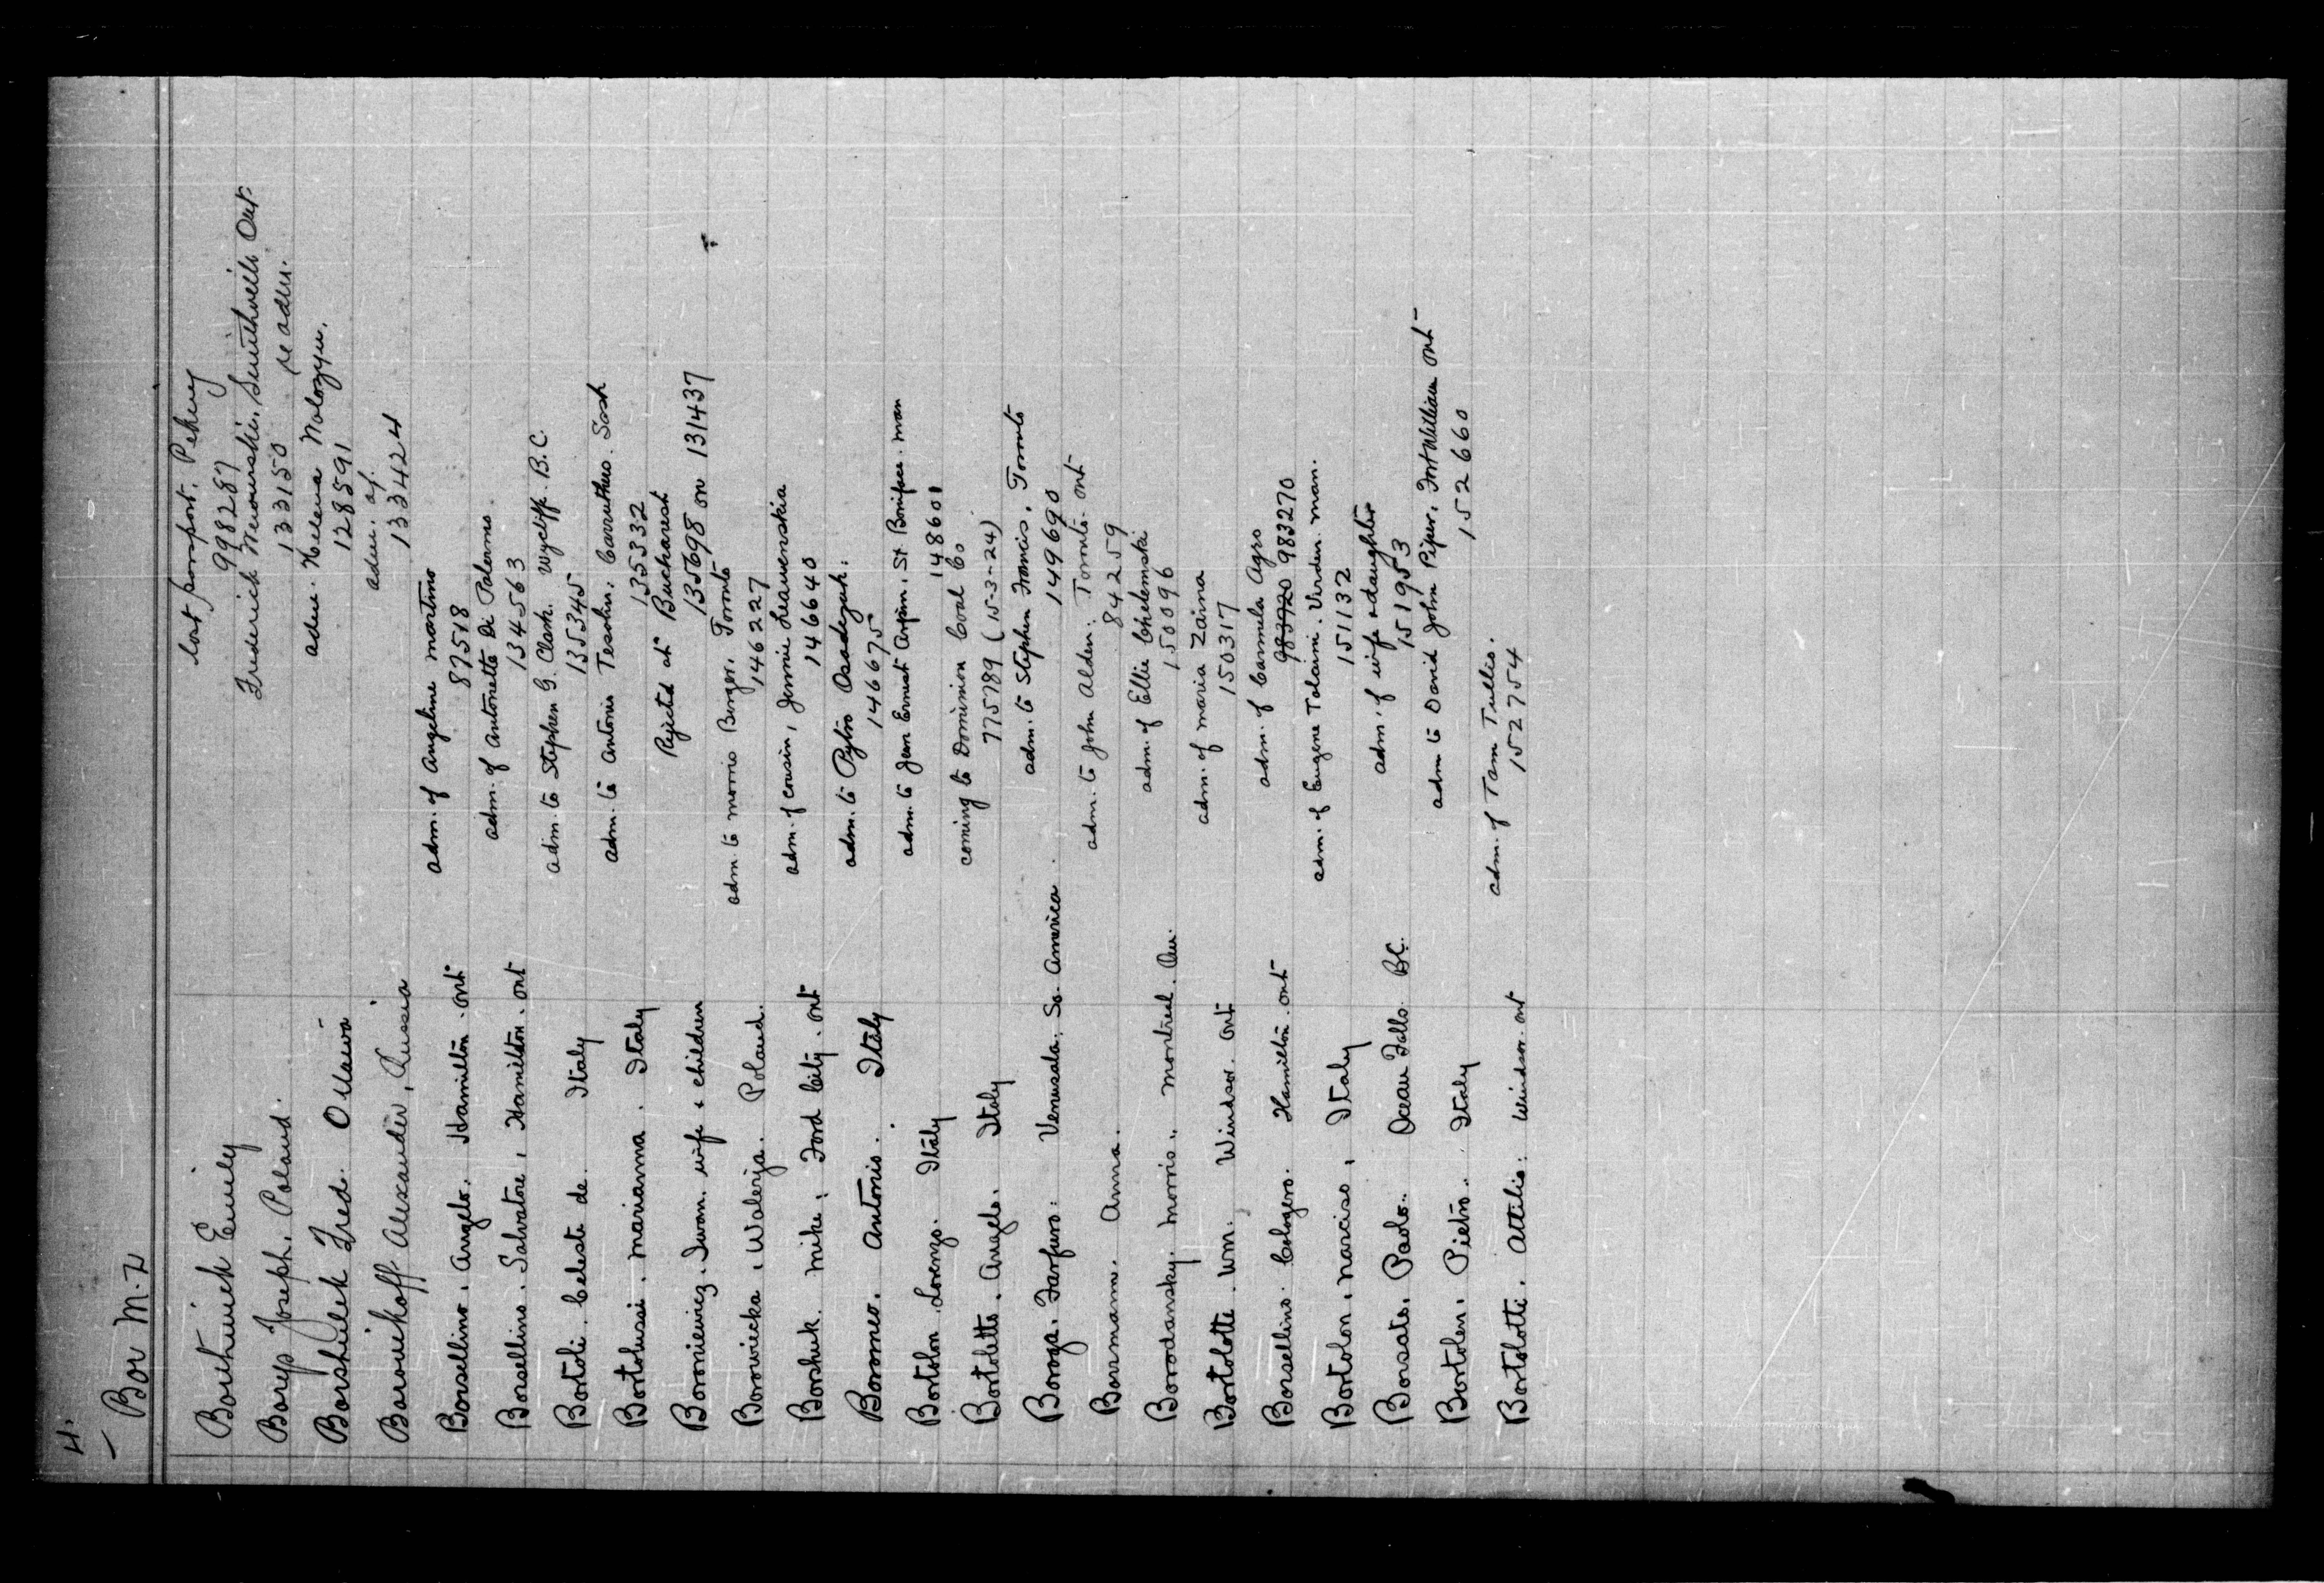 4.
Bor M-Z
Borthwick Emily
lost passport, Pekin
998287
Borys Joseph. Poland.
Frederick Smithville Ont
133150 re adm.
Borshilek Fred. Ottawa
adm. Helena
128591
Borovikoff Alexander, Russia
adm. of
133424
Borsellino. Angelo. Hamilton. ont
adm. of Angeline Martino
87518
Borsellino. Salvatore, Hamilton. ont
adm. of Antonette Di Palermo.
134563
Bortoli. Celeste de. Italy
adm. to Stephen G. Clark. Wycliffe. B.C.
135345
Bortolussi. Marianna. Italy
adm. to Antonio Tesolin. Carruthers. Sask
135332
Boroniewicz. Iwan. wife & children
Rejected at Bucharest
135698 on 131437
Borowicka, Walerja. Poland.
adm. to Morris Berger. Toronto
146227
Borshuk. Mike. Ford City. Ont
adm. of cousin, Jennie
146640
Borromeo. Antonio. Italy
adm. to Pytro Osadczuk.
146675
Bortolon. Lorenzo. Italy
adm. to Jean Ernest Arpin. St Boniface. man
148601
Bortoletto. Angelo. Italy
coming to Dominion Coal Co
775789 (15-3-24)
Boroga. Farfuro: Venuzala. So. America
adm. to Stephen Francis. Toronto
149690
Borsmann. Anna.
adm. to John Alden: Toronto. ont
842259
Borodansky. Morris. Montreal. Qu.
adm. of Ellie Chelemski
150096
Bortolotti. Wm. Windsor. Ont
adm. of Maria Zaina
150317
Borsellino. Calogero. Hamilton. ont
adm. of Carmela Agro
983920 983270
Bortolon, Narciso, Italy
adm. of Eugene Tolaini. Virden. man.
151132
Borsato. Paolo. Ocean Falls. B.C.
adm. of wife & daughter
151953
Bortolen. Pietro. Italy
adm to David John Piper. Fort William ont
152660
Bortolotti. Attilio. Windsor. ont
adm. of Tam Tullio.
152754